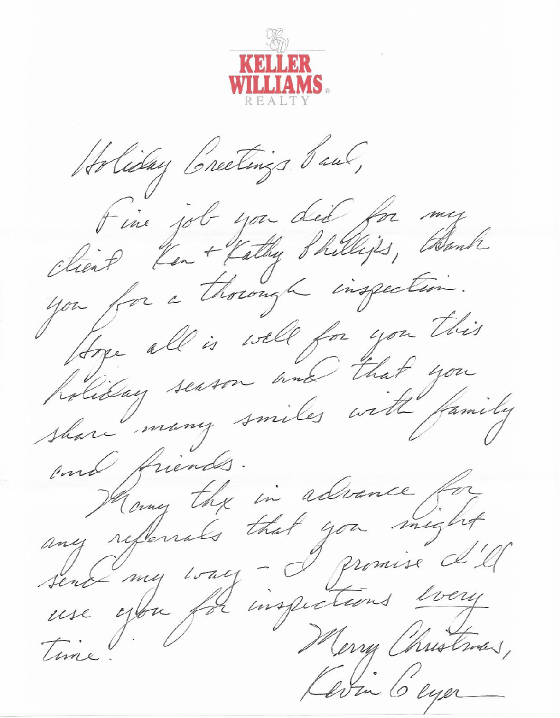 KW
KELLER
WILLIAMS®
REALTY
Holiday Greetings Paul,
Fine job you did for my
client Ken + Kathy Phillips, thank
you for a thorough inspection.
Hope all is well for you this
holiday season and that you
share many smiles with family
and friends.
Many thx in advance for
any referrals that you might
send my way - I promise I'll
use you for inspections every
time.
Merry Christmas,
Kevin Geyer